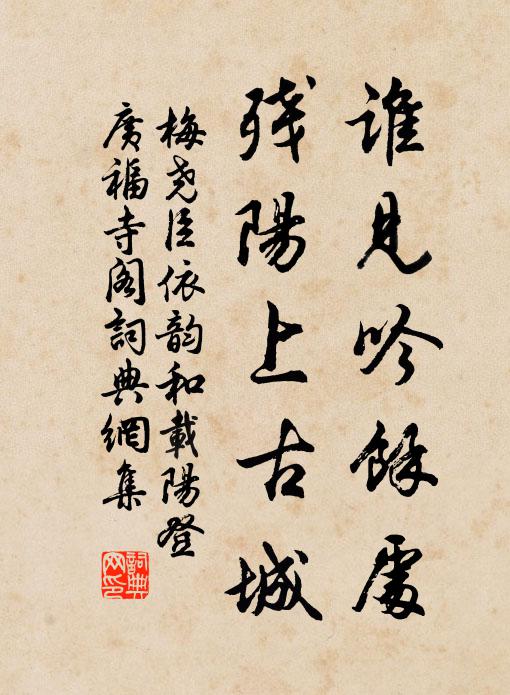 誰見吟餘處
殘陽上古城
梅堯臣依韵和載陽登
廣福寺閣詞典網集
詞典網印